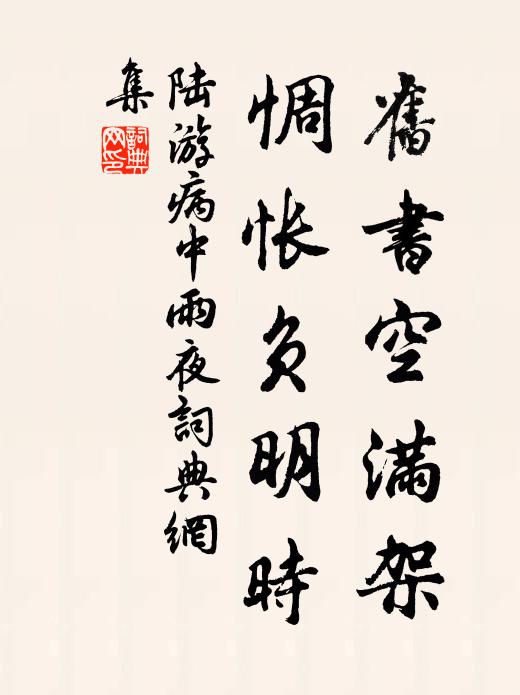 舊書空滿架
惆怅负明時
陆游病中雨夜詞典網
集
詞典
网印